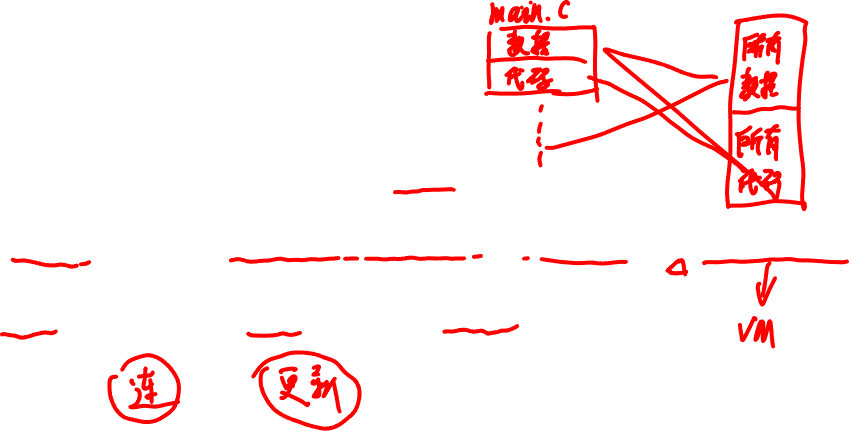 main.c
数据
代码
所有
数据
所有
代码
VM
连 更新